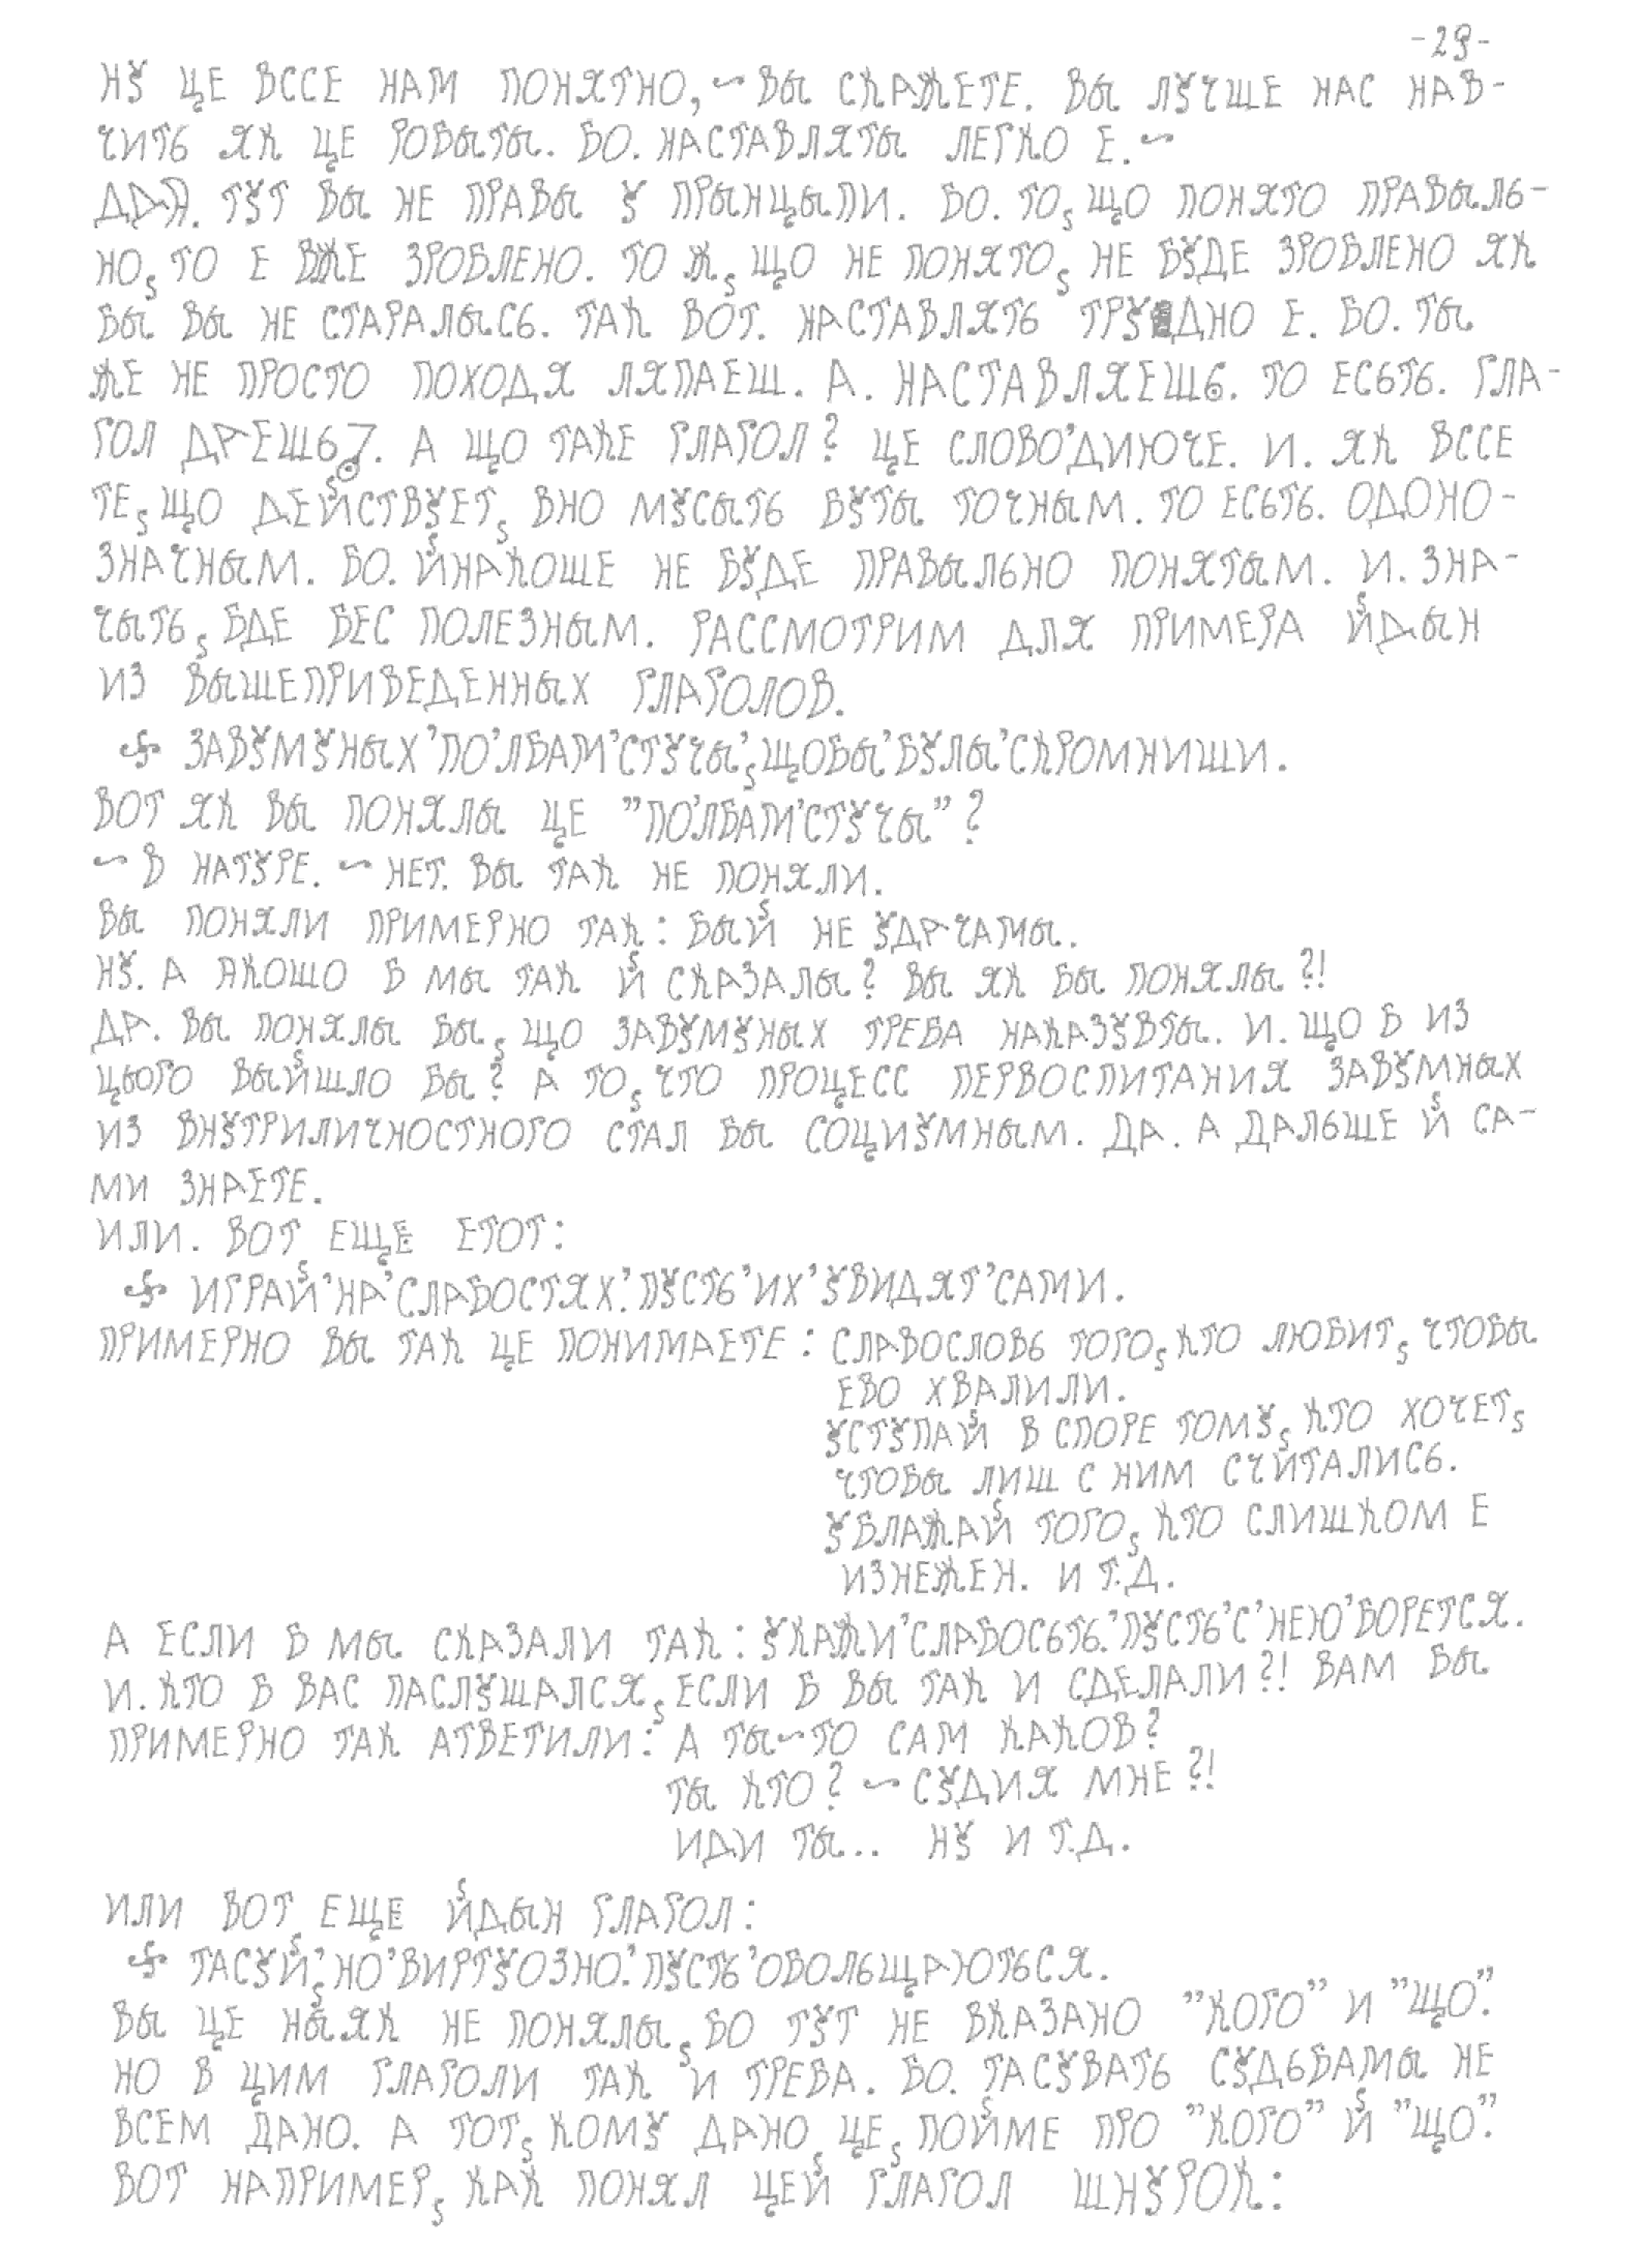 -29-
НУ ЦЕ ВССЕ НАМ ПОНЯТНО, ~ ВЫ СКАЖЕТЕ. ВЫ ЛУЧШЕ НАС НАВ-
ЧИТЬ ЯК ЦЕ РОБЫТЫ. БО. НАСТАВЛЯТЫ ЛЕГКО Е. ~
ТУТ ВЫ НЕ ПРАВЫ У ПРЫНЦЫПИ. БО. ТО, ЩО ПОНЯТО ПРАВЫЛЬ-
НО, ТО Е ВЖЕ ЗРОБЛЕНО. ТО Ж, ЩО НЕ ПОНЯТО, НЕ БУДЕ ЗРОБЛЕНО ЯК
БЫ ВЫ НЕ СТАРАЛЫСЬ. ТАК ВОТ. НАСТАВЛЯТЬ ТРУДНО Е. БО. ТЫ
ЖЕ НЕ ПРОСТО ПОХОДЯ ЛЯПАЕШ. А. НАСТАВЛЯЕШЬ. ТО ЕСЬТЬ. ГЛА-
ГОЛ ДАЕШЬ. А ЩО ТАКЕ ГЛАГОЛ? ЦЕ СЛОВО'ДИЮЧЕ. И. ЯК ВССЕ
ТЕ, ЩО ДЕЙСТВУЕТ, ВНО МУСЫТЬ БУТЫ ТОЧНЫМ. ТО ЕСЬТЬ. ОДОНО-
ЗНАЧНЫМ. БО. ЙНАКОШЕ НЕ БУДЕ ПРАВЫЛЬНО ПОНЯТЫМ. И. ЗНА-
ЧЫТЬ, БДЕ БЕС ПОЛЕЗНЫМ. РАССМОТРИМ ДЛЯ ПРИМЕРА ЙДЫН
ИЗ ВЫШЕПРИВЕДЕННЫХ ГЛАГОЛОВ.
卐 ЗАВУМУНЫХ'ПО'ЛБАМ'СТУЧЫ', ЩОБЫ'БУЛЫ'СКРОМНИШИ.
ВОТ ЯК ВЫ ПОНЯЛЫ ЦЕ "ПО'ЛБАМ'СТУЧЫ"?
~ В НАТУРЕ. ~ НЕТ. ВЫ ТАК НЕ ПОНЯЛИ.
ВЫ ПОНЯЛИ ПРИМЕРНО ТАК: БЫЙ НЕ УДАЧАМЫ.
НУ. А ЯКОШО Б МЫ ТАК Й СКАЗАЛЫ? ВЫ ЯК БЫ ПОНЯЛЫ?!
ДА. ВЫ ПОНЯЛЫ БЫ, ЩО ЗАВУМУНЫХ ТРЕБА НАКАЗУВТЫ. И. ЩО Б ИЗ
ЦЬОГО ВЫЙШЛО БЫ? А ТО, ЧТО ПРОЦЕСС ПЕРВОСПИТАНИЯ ЗАВУМНЫХ
ИЗ ВНУТРИЛИЧНОСТНОГО СТАЛ БЫ СОЦИУМНЫМ. ДА. А ДАЛЬШЕ Й СА-
МИ ЗНАЕТЕ.
ИЛИ. ВОТ ЕЩЕ ЕТОТ:
卐 ИГРАЙ'НА'СЛАБОСТЯХ.'ПУСТЬ'ИХ'УВИДЯТ'САМИ.
ПРИМЕРНО ВЫ ТАК ЦЕ ПОНИМАЕТЕ: СЛАВОСЛОВЬ ТОГО, КТО ЛЮБИТ, ЧТОБЫ
ЕВО ХВАЛИЛИ.
УСТУПАЙ В СПОРЕ ТОМУ, КТО ХОЧЕТ,
ЧТОБЫ ЛИШ С НИМ СЧИТАЛИСЬ.
УБЛАЖАЙ ТОГО, КТО СЛИШКОМ Е
ИЗНЕЖЕН. И Т.Д.
А ЕСЛИ Б МЫ СКАЗАЛИ ТАК: УКАЖИ'СЛАБОСЬТЬ.'ПУСТЬ'С'НЕЮ'БОРЕТСЯ.
И. КТО Б ВАС ПАСЛУШАЛСЯ, ЕСЛИ Б ВЫ ТАК И СДЕЛАЛИ?! ВАМ БЫ
ПРИМЕРНО ТАК АТВЕТИЛИ: А ТЫ~ТО САМ КАКОВ?
ТЫ КТО? ~ СУДИЯ МНЕ?!
ИДИ ТЫ... НУ И Т.Д.
ИЛИ ВОТ ЕЩЕ ЙДЫН ГЛАГОЛ:
卐 ТАСУЙ,'НО'ВИРТУОЗНО.'ПУСТЬ'ОБОЛЬЩАЮТЬСЯ.
ВЫ ЦЕ НЫЯК НЕ ПОНЯЛЫ, БО ТУТ НЕ ВКАЗАНО "КОГО" И "ЩО".
НО В ЦИМ ГЛАГОЛИ ТАК И ТРЕБА. БО. ТАСУВАТЬ СУДЬБАМЫ НЕ
ВСЕМ ДАНО. А ТОТ, КОМУ ДАНО ЦЕ, ПОЙМЕ ПРО "КОГО" Й "ЩО".
ВОТ НАПРИМЕР, КАК ПОНЯЛ ЦЕЙ ГЛАГОЛ ШНУРОК: